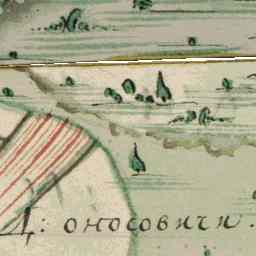 Д: оносовичи.